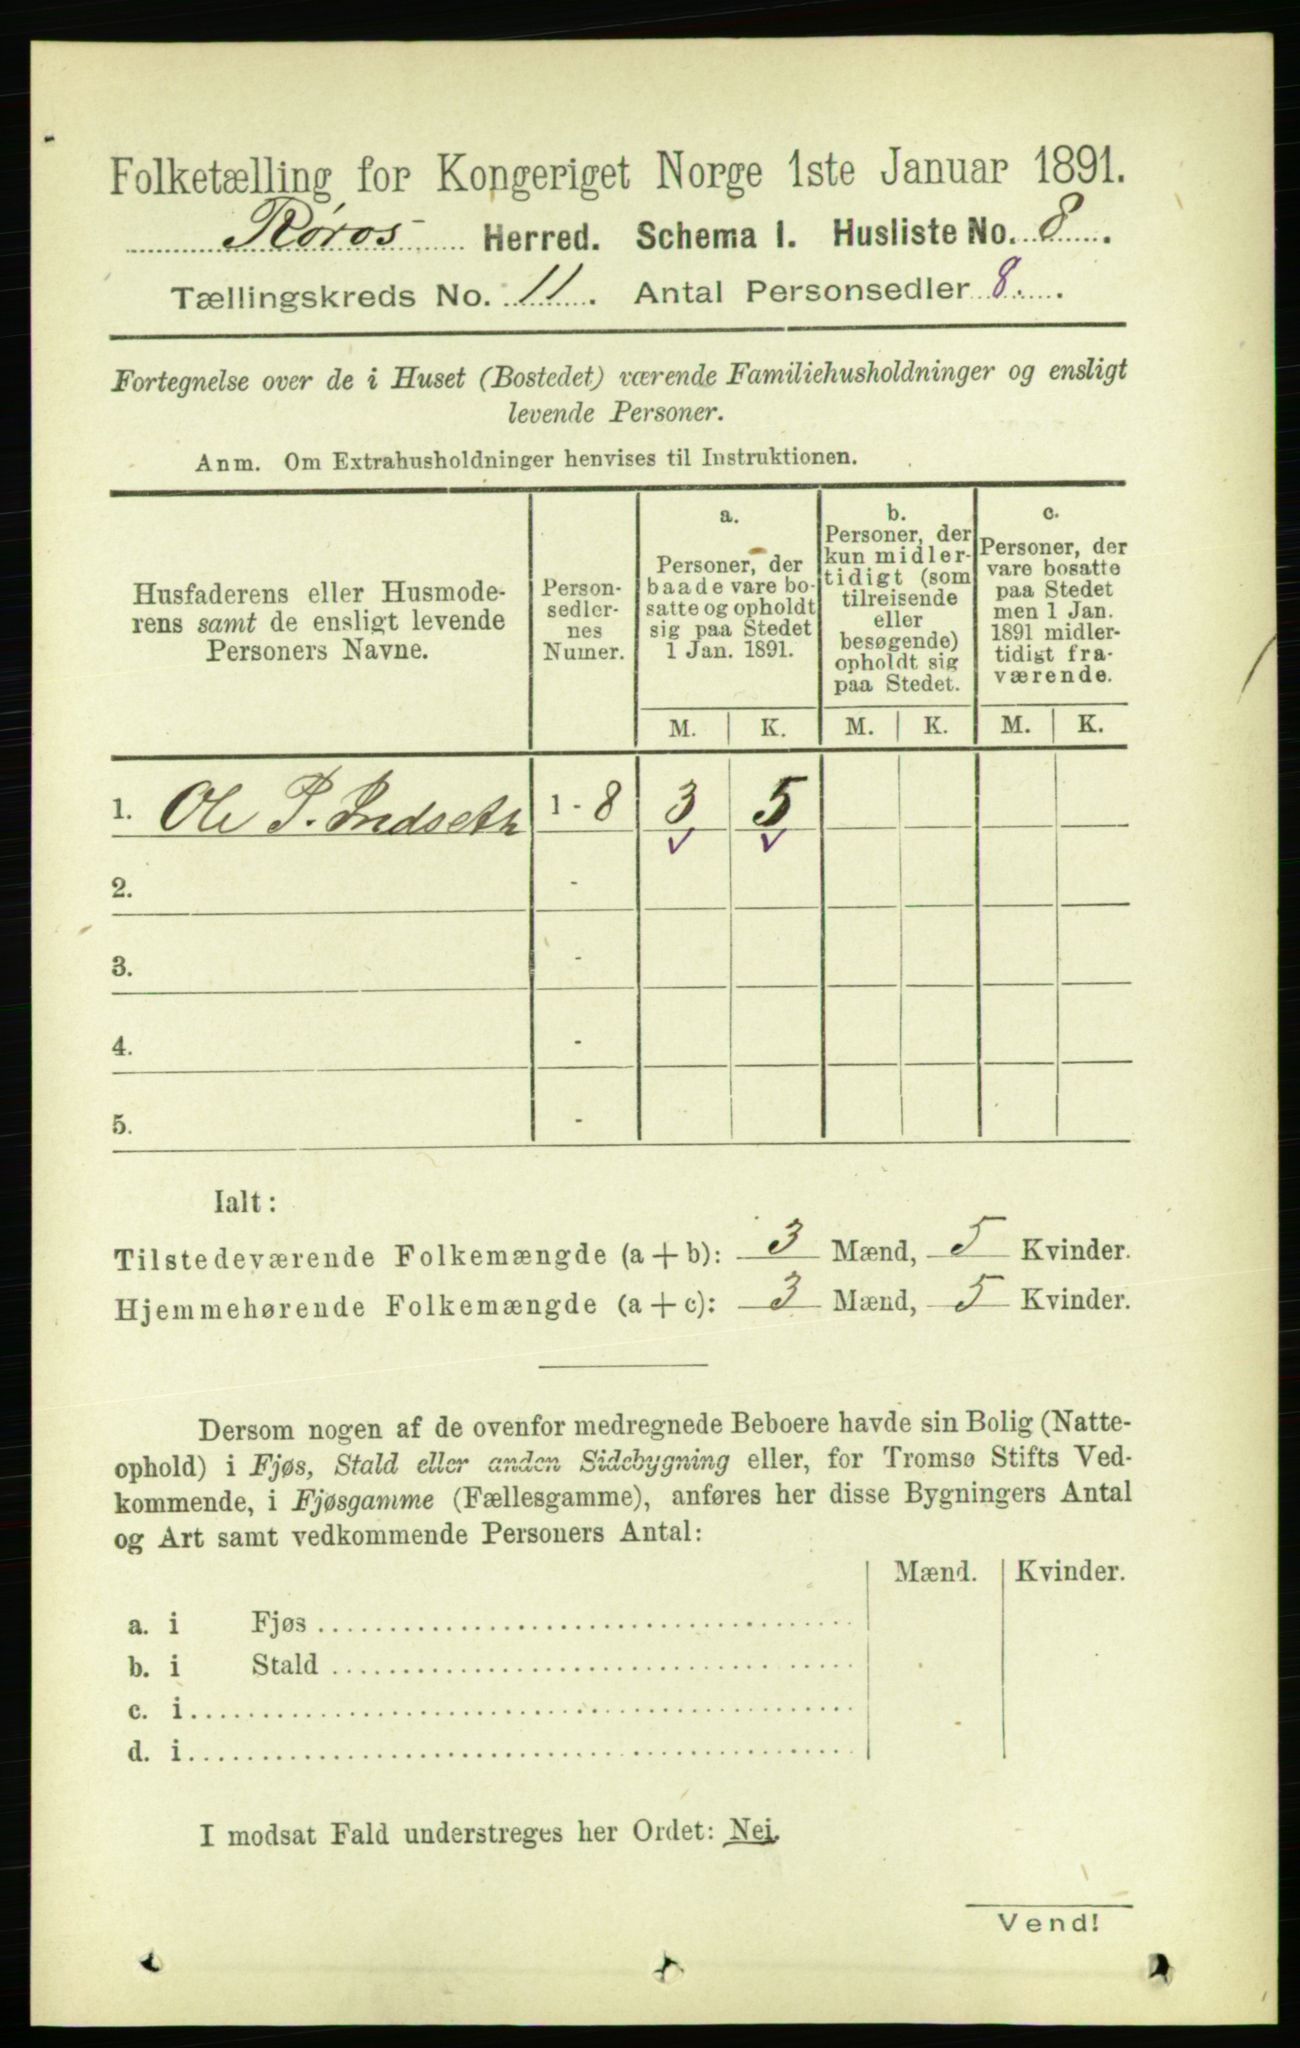 Folketælling for Kongeriget Norge 1ste Januar 1891.
Røros Herred. Schema 1. Husliste No. 8.
Tællingskreds No. 11. Antal Personsedler 8.
Fortegnelse over de i Huset (Bostedet) værende Familiehusholdninger og ensligt
levende Personer.
Anm. Om Extrahusholdninger henvises til Instruktionen.
Husfaderens eller Husmode-
rens samt de ensligt levende
Personers Navne.
Person-
sedler-
nes
Numer.
a.
Personer, der
baade vare bo-
satte og opholdt
sig paa Stedet
1 Jan. 1891.
b.
Personer, der
kun midler-
tidigt (som
tilreisende
eller
besøgende)
opholdt sig
paa Stedet.
c.
Personer, der
vare bosatte
paa Stedet
men 1 Jan.
1891 midler-
tidigt fra-
værende.
M. K. M. K. M. K.
1. Ole P. Indseth 1 - 8 3 5
2. -
3. -
4. -
5. -
Ialt:
Tilstedeværende Folkemængde (a + b): 3 Mænd, 5 Kvinder.
Hjemmehørende Folkemængde (a + c): 3 Mænd, 5 Kvinder.
Dersom nogen af de ovenfor medregnede Beboere havde sin Bolig (Natte-
ophold) i Fjøs, Stald eller anden Sidebygning eller, for Tromsø Stifts Ved-
kommende, i Fjøsgamme (Fællesgamme), anføres her disse Bygningers Antal
og Art samt vedkommende Personers Antal:
Mænd. Kvinder.
a. i Fjøs
b. i Stald
c. i
d. i
I modsat Fald understreges her Ordet: Nei.
Vend!